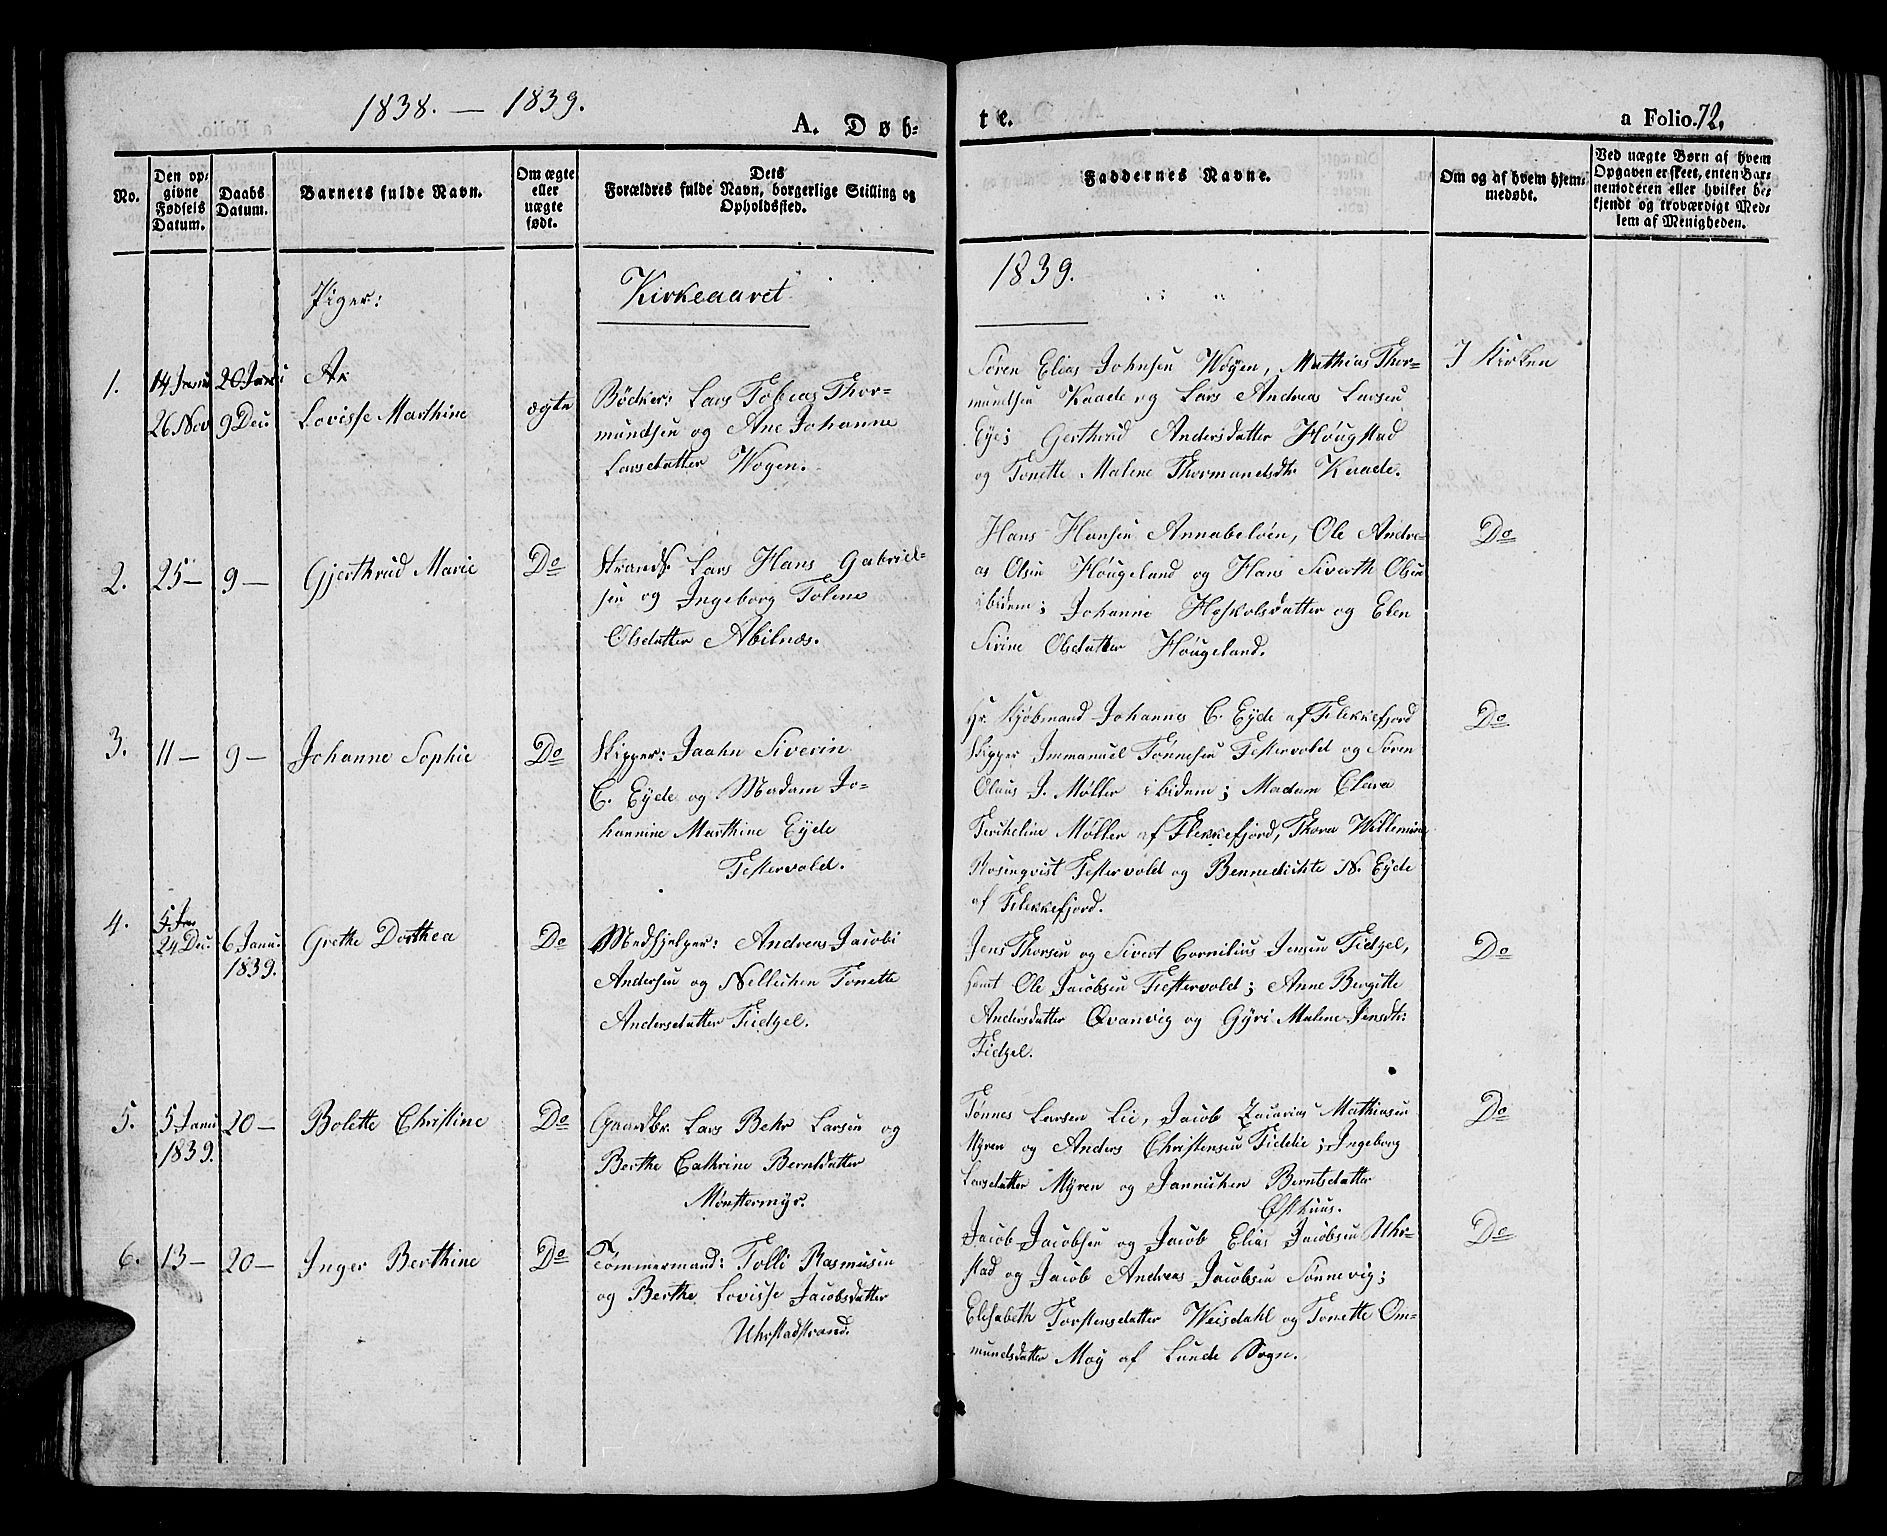 1838. — 1839.
A. Døb-
te.
a Folio. 72.
No.
Den op-
givne
Fødsels
Datum.
Daabs
Datum.
Barnets fulde Navn.
Om ægte
eller
uægte
født.
Dets
Forældres fulde Navn, borgerlige Stilling og
Opholdssted.
Faddernes Navne.
Om og af hvem hjem-
medøbt.
Ved uægte Børn af hvem
Opgaven er skeet, enten Bar-
nemoderen eller hvilket be-
kjendt og troværdigt Med-
lem af Menigheden.
Piger:
Kirkeaaret
1839.
1.
14 Janu
26 Nov
20 Janu
9 Dec.
Lovisse Marthine
ægte
Bödker: Lars Tobias Thor-
mundsen og Ane Johanne
Larsdatter Wogen.
Sören Elias Johnsen Wogen, Mathias Thor-
mundsen Kaade og Lars Andreas Larsen
Eye; Gerthrud Andersdatter Høugstad
og Tonette Malene Thormundsdtr Kaade.
I Kirken
2.
25 —
9 —
Gjerthrud Marie
Do
Strands. Lars Hans Gabriel-
sen og Ingeborg Tolene
Olsdatter Abilnæs.
Hans Hansen Annabeløen, Ole Andre-
as Olsen Høugeland og Hans Siverth Olsen
ibidem; Johanne Hoskolsdatter og Elen
Sirine Olsdatter Høugeland.
Do
3.
11 —
9 —
Johanne Sophie
Do
Skipper: Jaahn Siverin
C. Eyde og Madam Jo-
hannine Marthine Eyde
Festervold.
Hr. Kjöbmand Johannes C. Eyde af Flekkefjord
Skipper Immanuel Tønnesen Festervold og Søren
Olaus J. Møller ibidem; Madam Clara
Møller af Flekkefjord, Thora Willemine
Rosenqvist Festervold og Bennedichte N. Eyde
af Flekkefjord.
Do
4.
5 Jan
24 Dec.
6 Janu.
1839.
Grethe Dorthea
Do
Medhjelper: Andreas Jacobi
Andersen og Nellichen Tonette
Andersdatter Fidzel.
Jens Thorsen og Sivert Cornilius Jensen Fidzel,
samt Ole Jacobsen Festervold; Anne Bergitte
Andersdatter Qvanvig og Gyri Malene Jensdtr:
Fidzel.
Do
5.
5 Janu
1839.
20 —
Bolette Christine
Do
Gaardbr. Lars Behr Larsen og
Berthe Cathrine Berntsdatter
Mønstermyr.
Tønnes Larsen Lie, Jacob Zacarias Mathiasen
Myren og Anders Christensen Fidelie; Ingeborg
Larsdatter Myren og Jannichen Berntsdatter
Østhuus.
Do
6.
13 —
20 —
Inger Berthine
Do
Tömmermand: Tolli Rasmusen
og Berthe Lovisse Jacobsdatter
Uhrstadstrand.
Jacob Jacobsen og Jacob Elias Jacobsen Uhr-
stad og Jacob Andreas Jacobsen Sønnevig;
Elisabeth Torstensdatter Weisdahl og Tonette Om-
mundsdatter Moy af Lunde Sogn.
Do